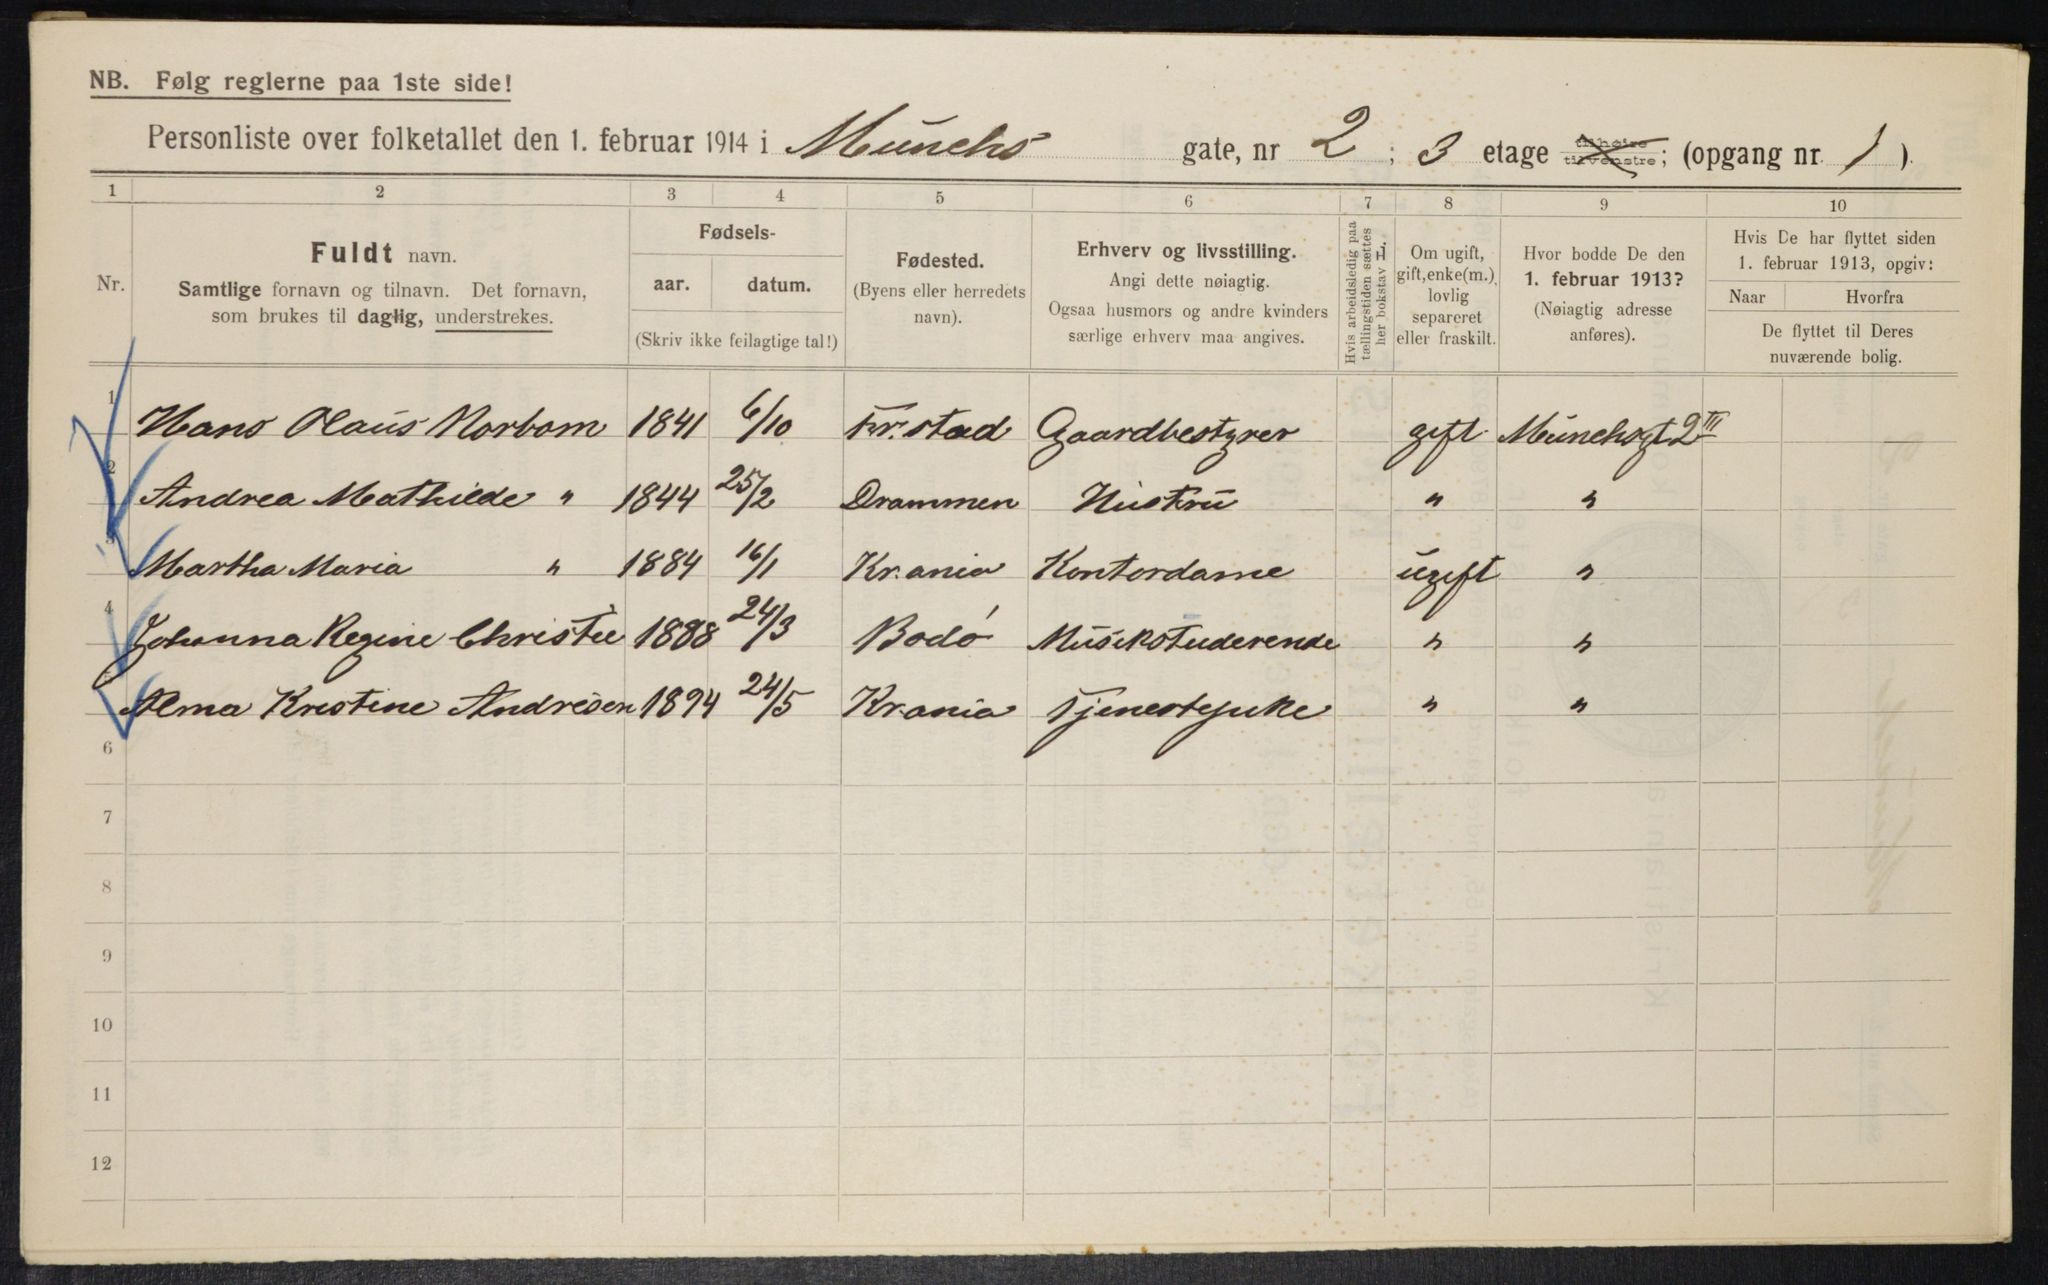 NB. Følg reglerne paa 1ste side!
Personliste over folketallet den 1. februar 1914 i Munchs gate, nr 2 ; 3 etage tilhøire tilvenstre; (opgang nr. 1 ).
1 2 3 4 5 6 7 8 9 10
Nr.
Fuldt navn.
Samtlige fornavn og tilnavn. Det fornavn,
som brukes til daglig, understrekes.
Fødsels-
aar. datum.
(Skriv ikke feilagtige tal!)
Fødested.
(Byens eller herredets
navn).
Erhverv og livsstilling.
Angi dette nøiagtig.
Ogsaa husmors og andre kvinders
særlige erhverv maa angives.
Hvis arbeidsledig paa
tællingstiden sættes
her bokstav L.
Om ugift,
gift, enke(m.),
lovlig
separeret
eller fraskilt.
Hvor bodde De den
1. februar 1913?
(Nøiagtig adresse
anføres).
Hvis De har flyttet siden
1. februar 1913, opgiv:
Naar Hvorfra
De flyttet til Deres
nuværende bolig.
1 Hans Olaus Norbom 1841 6/10 Fr.stad Gaardbestyrer gift Munchsgt 2 III
2 Andrea Mathilde " 1844 25/2 Drammen Hustru " "
3 Martha Maria " 1884 16/1 Kr.ania Kontordame ugift "
4 Johanna Regine Christie 1888 24/3 Bodø Musikstuderende " "
5 Alma Kristine Andresen 1894 24/5 Kr.ania Tjenestepike " "
6
7
8
9
10
11
12